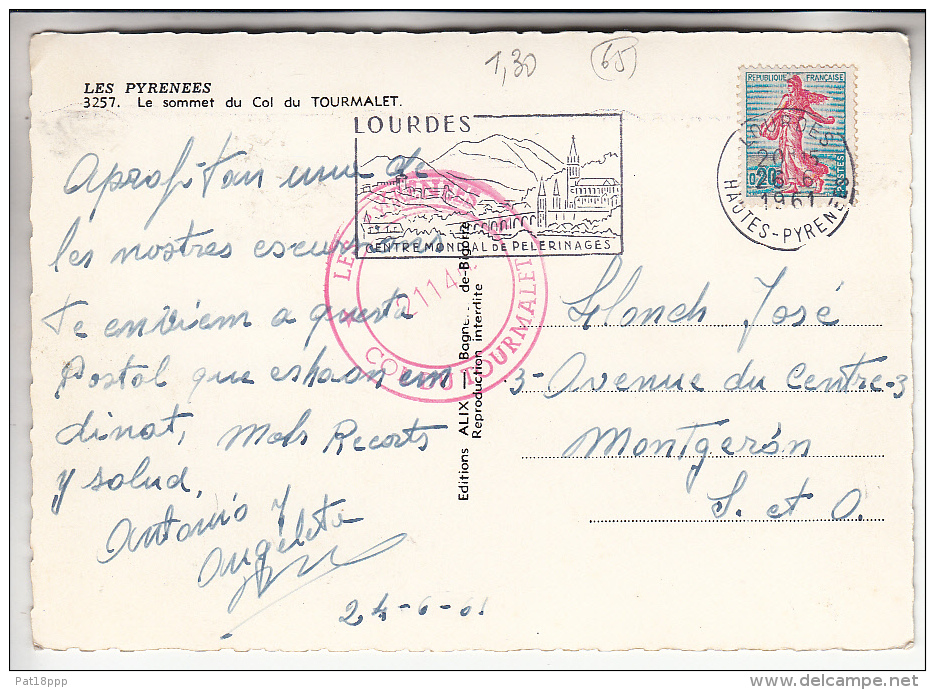 1,30
65
LES PYRENEES
3257. Le sommet du Col du TOURMALET.
LOURDES
CENTRE MONDIAL DE PELERINAGES
REPUBLIQUE FRANCAISE
0,20
POSTES
LOURDES
1961
HAUTES-PYRENEES
LES PYRENEES
2114
COL DU TOURMALET
Aprofitan une de
les nostres escursions
Te enviem a questa
Postal que esha on em
dinat, Mols Recorts
y salud,
Antonio y
Angeleta
24-6-61
Editions ALIX Bagn de-Bigorre
Reproduction interdite
Llonch José
3-Avenue du Centre-3
Montgerón
S. et O.
Pat18ppp
delcampe.net